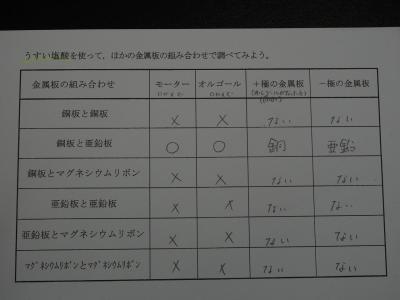 うすい塩酸を使って、ほかの金属板の組み合わせで調べてみよう。
金属板の組み合わせ モーター オルゴール +極の金属板 −極の金属板
銅板と銅板 × × ない ない
銅板と亜鉛板 ○ ○ 銅 亜鉛
銅板とマグネシウムリボン × × ない ない
亜鉛板と亜鉛板 × × ない ない
亜鉛板とマグネシウムリボン × × ない ない
マグネシウムリボンとマグネシウムリボン × × ない ない